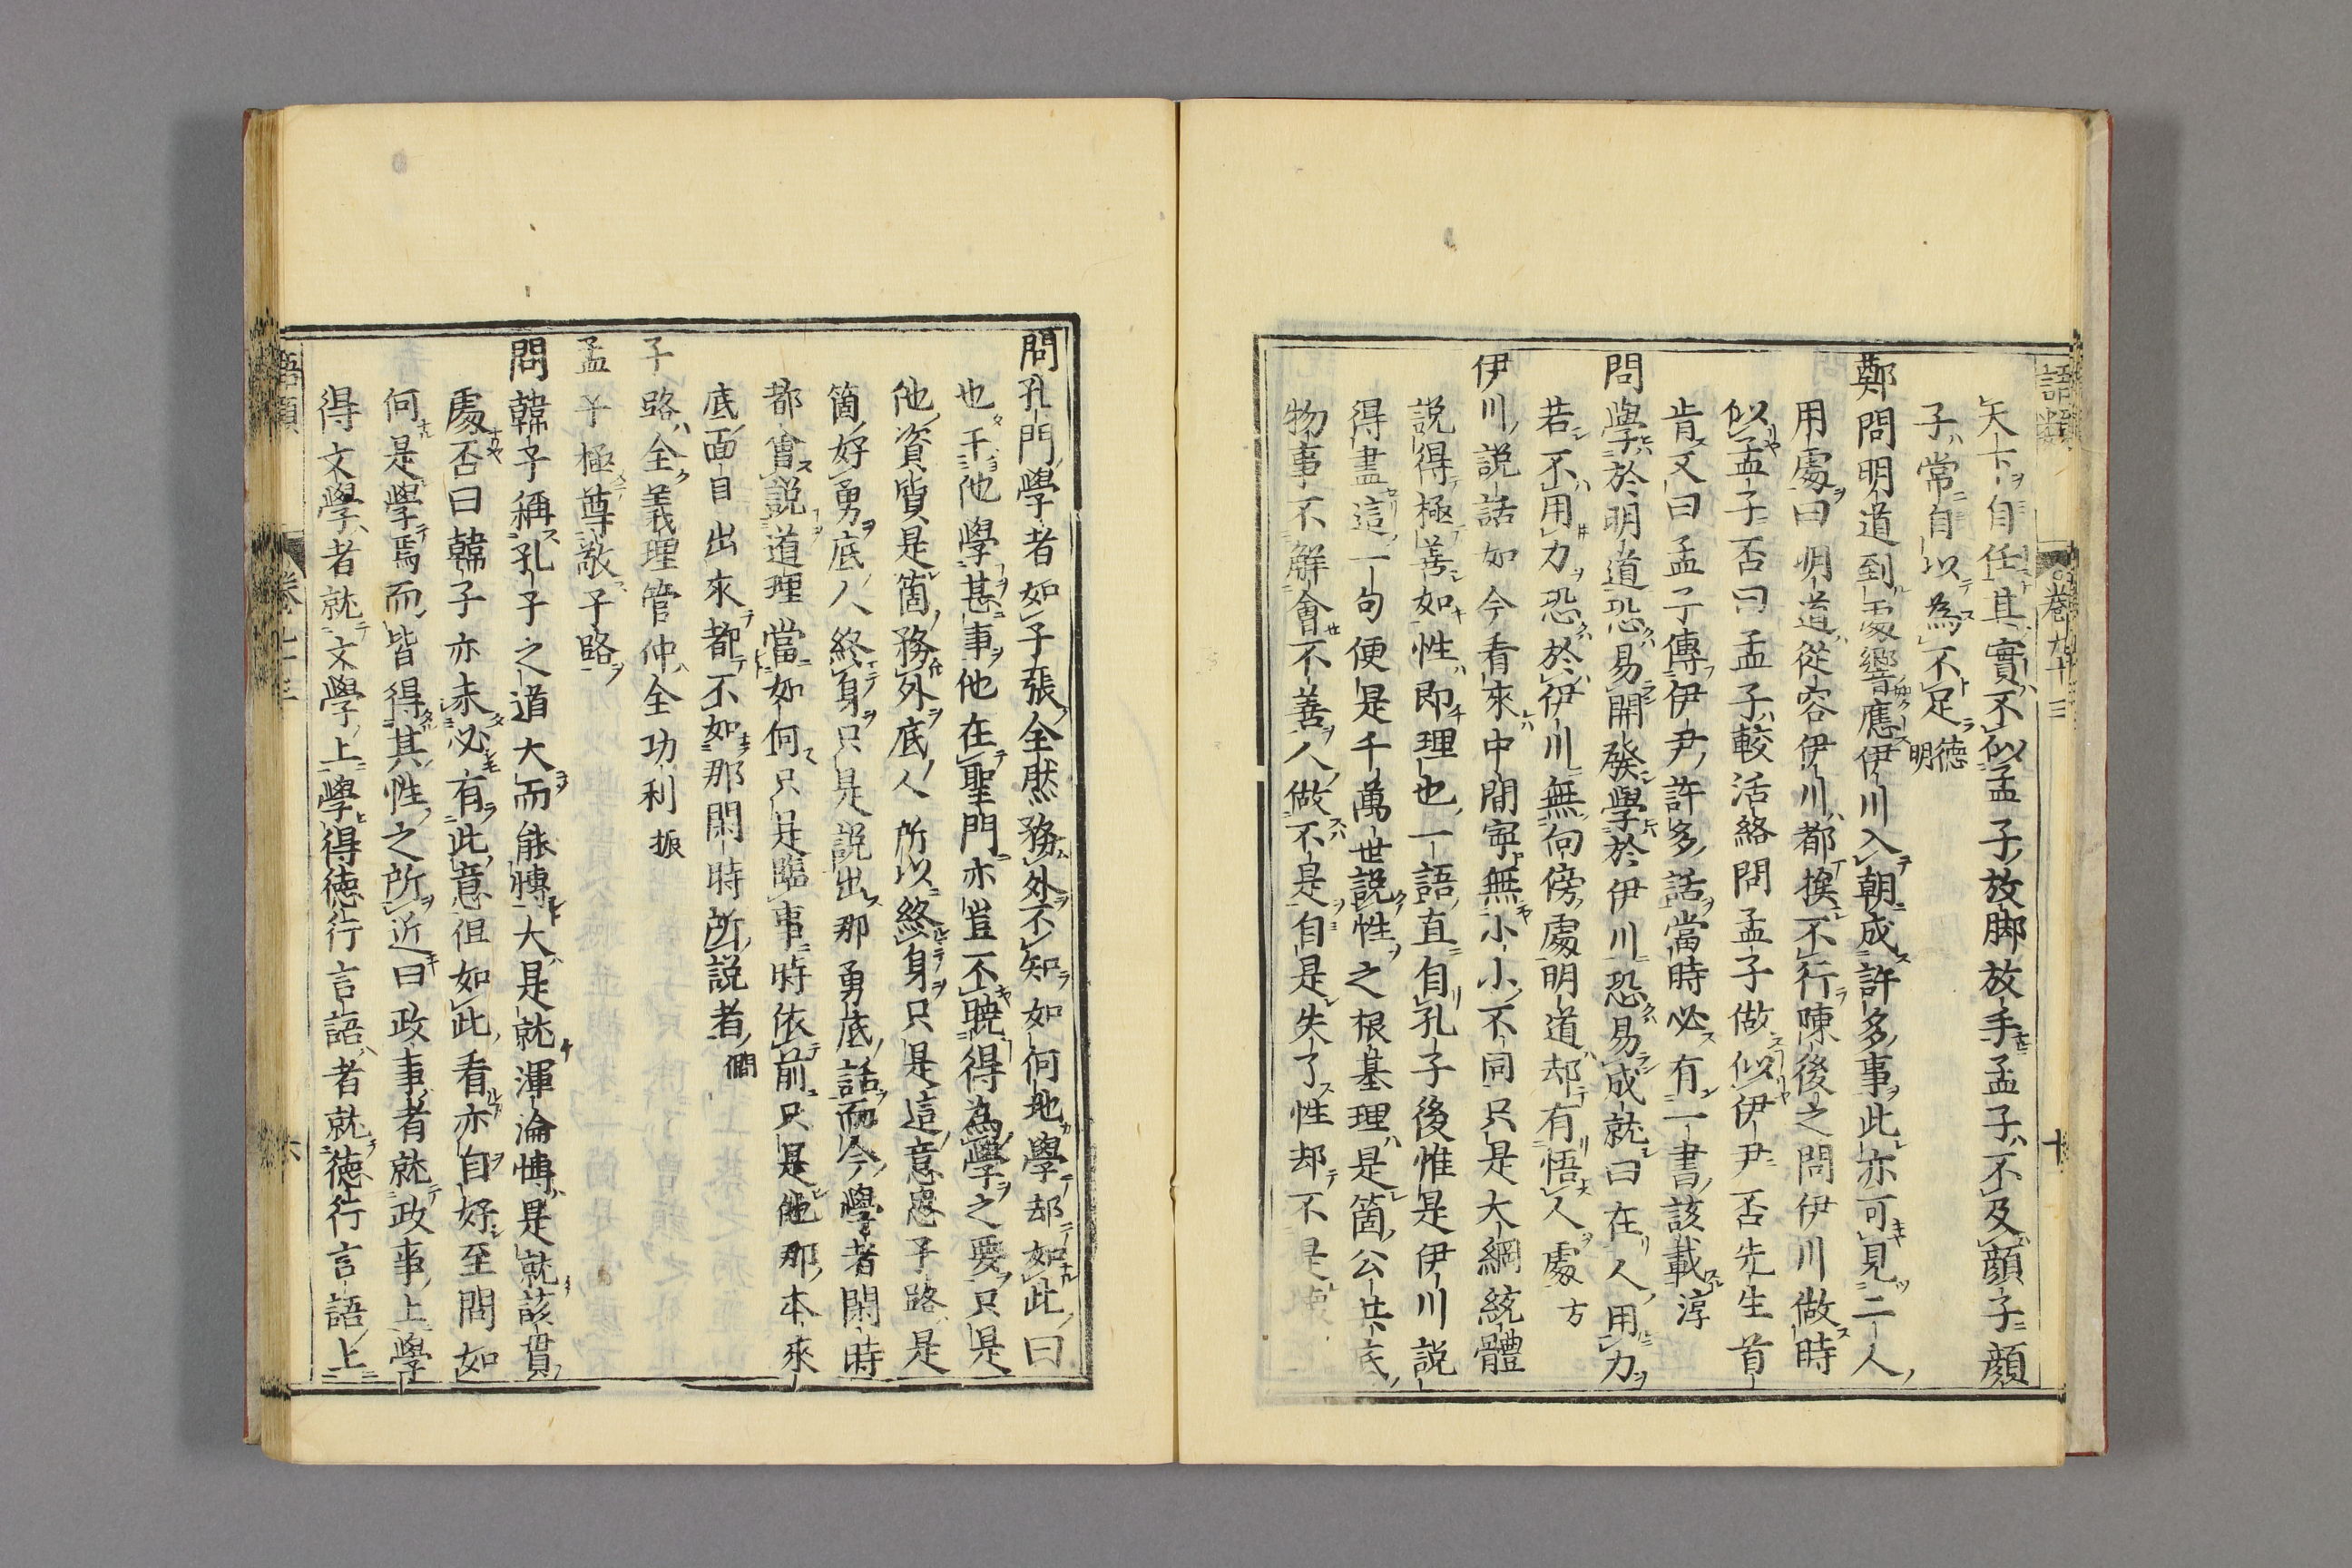 語類
卷九十三
十
天下自任其實不似孟子放脚放手孟子不及顔子顔
子常自以為不足德明
鄭問明道到處響應伊川入朝成許多事此亦可見二人
用處曰明道從容伊川都挨不行陳後之問伊川做時
似孟子否曰孟子較活絡問孟子做似伊尹否先生首
肯又曰孟子傳伊尹許多話當時必有一書該載淳
問學於明道恐易開發學於伊川恐易成就曰在人用力
若不用力恐於伊川無向傍處明道却有悟人處方
伊川説話如今看來中間寧無小小不同只是大綱統體
説得極善如性即理也一語直自孔子後惟是伊川説
得盡這一句便是千萬世説性之根基理是箇公共底
物事不解會不善人做不是自是失了性却不是
問孔門學者如子張全然務外不知如何地學却如此曰
也干他學甚事他在聖門亦豈不曉得為學之要只是
他資質是箇務外底人所以終身只是這意思子路是
箇好勇底人終身只是説出那勇底話而今學者閑時
都會説道理當如何只是臨事時依前只是他那本來
底面目出來都不如那閑時所説者僩
子路全義理管仲全功利振
孟子極尊敬子路
問韓子稱孔子之道大而能博大是就渾淪博是就該貫
處否曰韓子亦未必有此意但如此看亦自好至問如
何是學焉而皆得其性之所近曰政事者就政事上學
得文學者就文學上學得德行言語者就德行言語上
語類
卷九十三